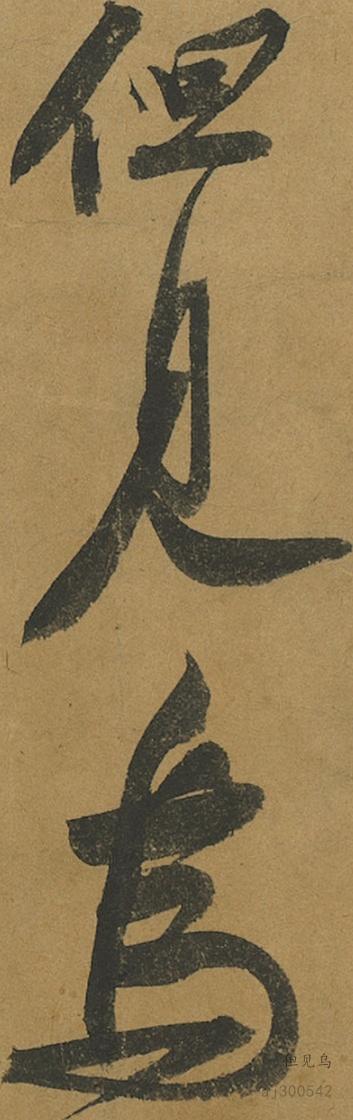 但見烏
但见乌
aj300542